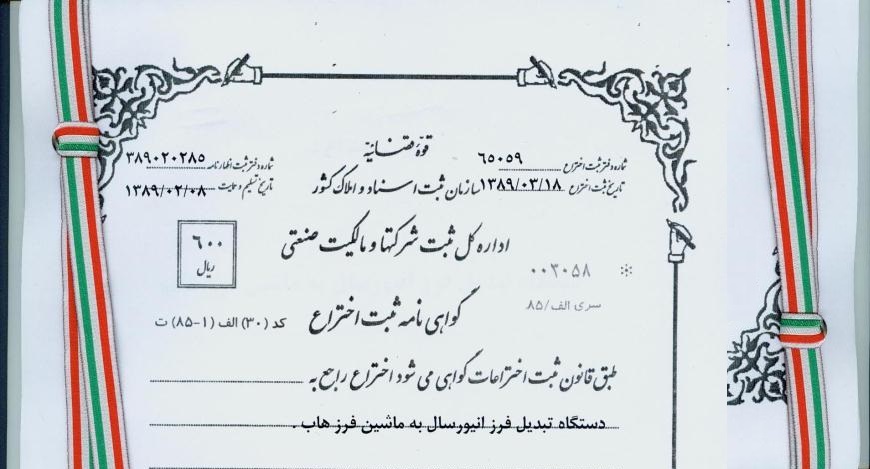 قوّهٔ قضائیّه
شماره دفتر ثبت اختراع ۶۵۰۵۹
شماره دفتر ثبت اظهارنامه ۳۸۹۰۲۰۲۸۵
سازمان ثبت اسناد و املاک کشور
تاریخ ثبت اختراع ۱۳۸۹/۰۳/۱۸
تاریخ تسلیم و حمایت ۱۳۸۹/۰۲/۰۸
اداره کل ثبت شرکتها و مالکیت صنعتی
۶۰۰
ریال
۰۰۳۰۵۸
سری الف/۸۵
گواهی نامه ثبت اختراع
کد (۳۰) الف (۱-۸۵) ت
طبق قانون ثبت اختراعات گواهی می شود اختراع راجع به
دستگاه تبدیل فرز انیورسال به ماشین فرز هاب .